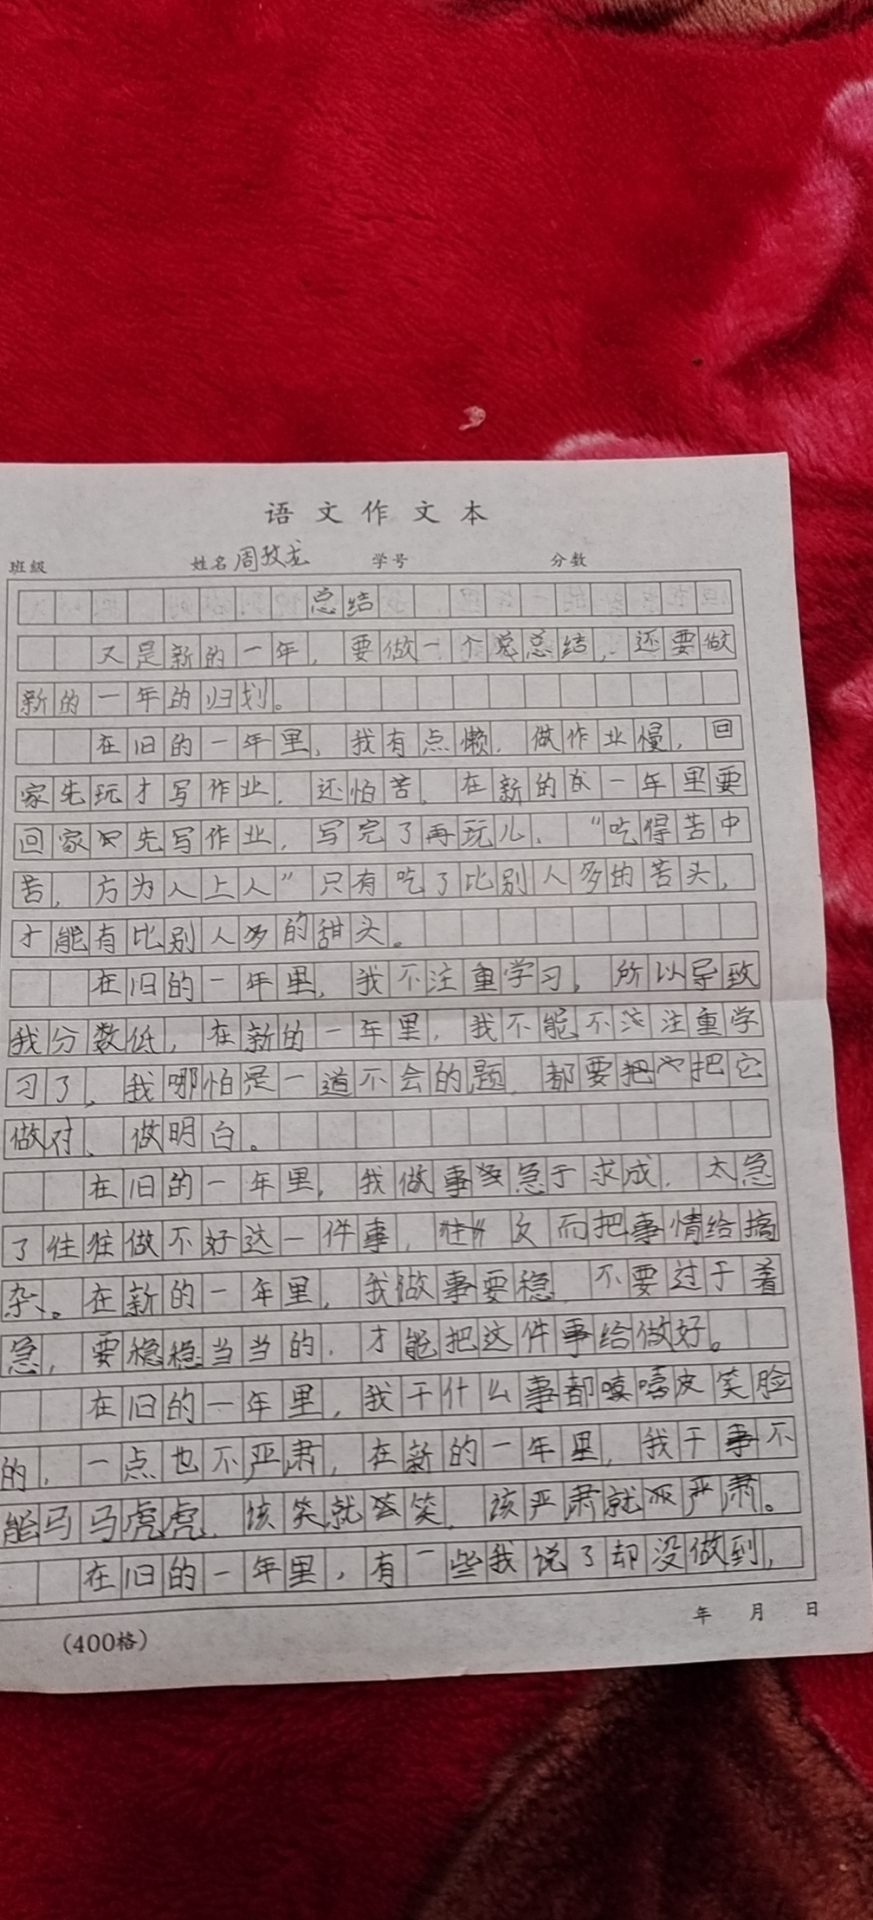 语文作文本
班级 姓名 周 龙 学号 分数
总结
又是新的一年，要做一个总结，还要做
新的一年的归划。
在旧的一年里，我有点懒，做作业慢，回
家先玩才写作业，还怕苦，在新的一年里要
回家先写作业，写完了再玩儿，“吃得苦中
苦，方为人上人”只有吃了比别人多的苦头，
才能有比别人多的甜头。
在旧的一年里，我不注重学习，所以导致
我分数低，在新的一年里，我不能不注重学
习了，我哪怕是一道不会的题，都要把它
做对、做明白。
在旧的一年里，我做事急于求成，太急
了往往做不好这一件事，反而把事情给搞
杂、。在新的一年里，我做事要稳，不要过于着
急，要稳稳当当的，才能把这件事给做好。
在旧的一年里，我干什么事都嘻嘻皮笑脸
的，一点也不严肃，在新的一年里，我干事不
能马马虎虎，该笑就笑，该严肃就严肃。
在旧的一年里，有一些我说了却没做到，
年 月 日
(400格)